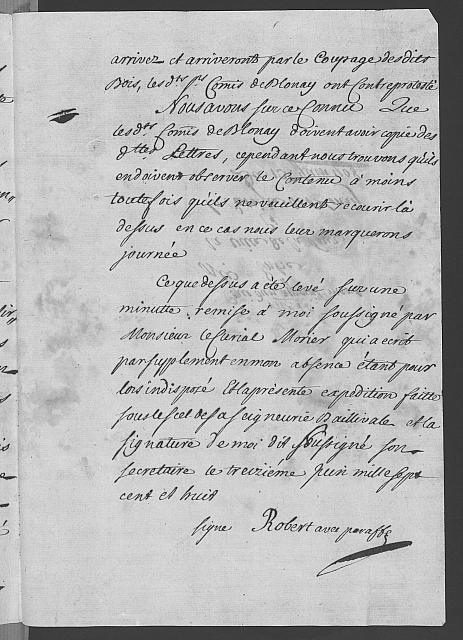 arrivez et arriveront par le Coupage desdits
Bois, les dts Srs Comis de Blonay ont Contreprotesté
Nous avons sur ce Connu Que
les dts Comis de Blonay doivent avoir copie des
dttes Lettres, cependant nous trouvons qu'ils
en doivent observer le Contenu à moins
toutefois qu'ils ne veuillent recourir là
dessus en ce cas nous leur marquerons
journée
Ce que dessus a été levé sur une
minute remise à moi soussigné par
Monsieur le Curial Morier qui a ecrit
par supplement en mon absence étant pour
lors indisposé Et la presente expedition faitte
sous le scel de sa seigneurie Baillivale et la
signature de moi dit soussigné son
secretaire le treizième juin mille sept
cent et huit
signé Robert avec paraffe